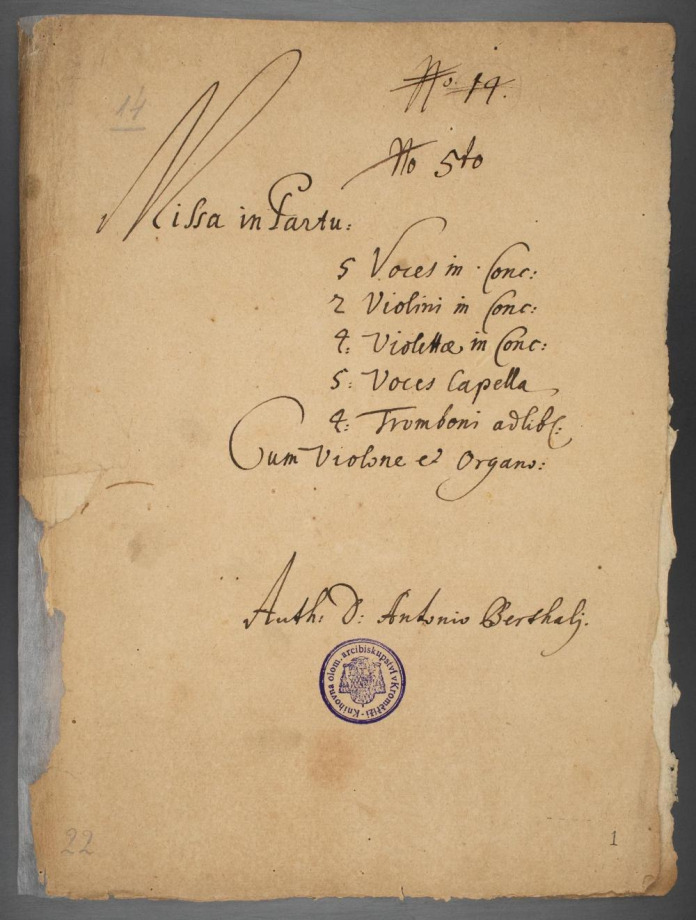 14
No. 14.
No 5to
Missa in Partu:
5 Voces in Conc:
2 Violini in Conc:
4: Violettæ in Conc:
5: Voces Capella
4: Tromboni ad lib:
Cum Violone et Organo:
Auth: D: Antonio Berthalj.
Knihovna olom. arcibiskupství v Kroměříži
22
1